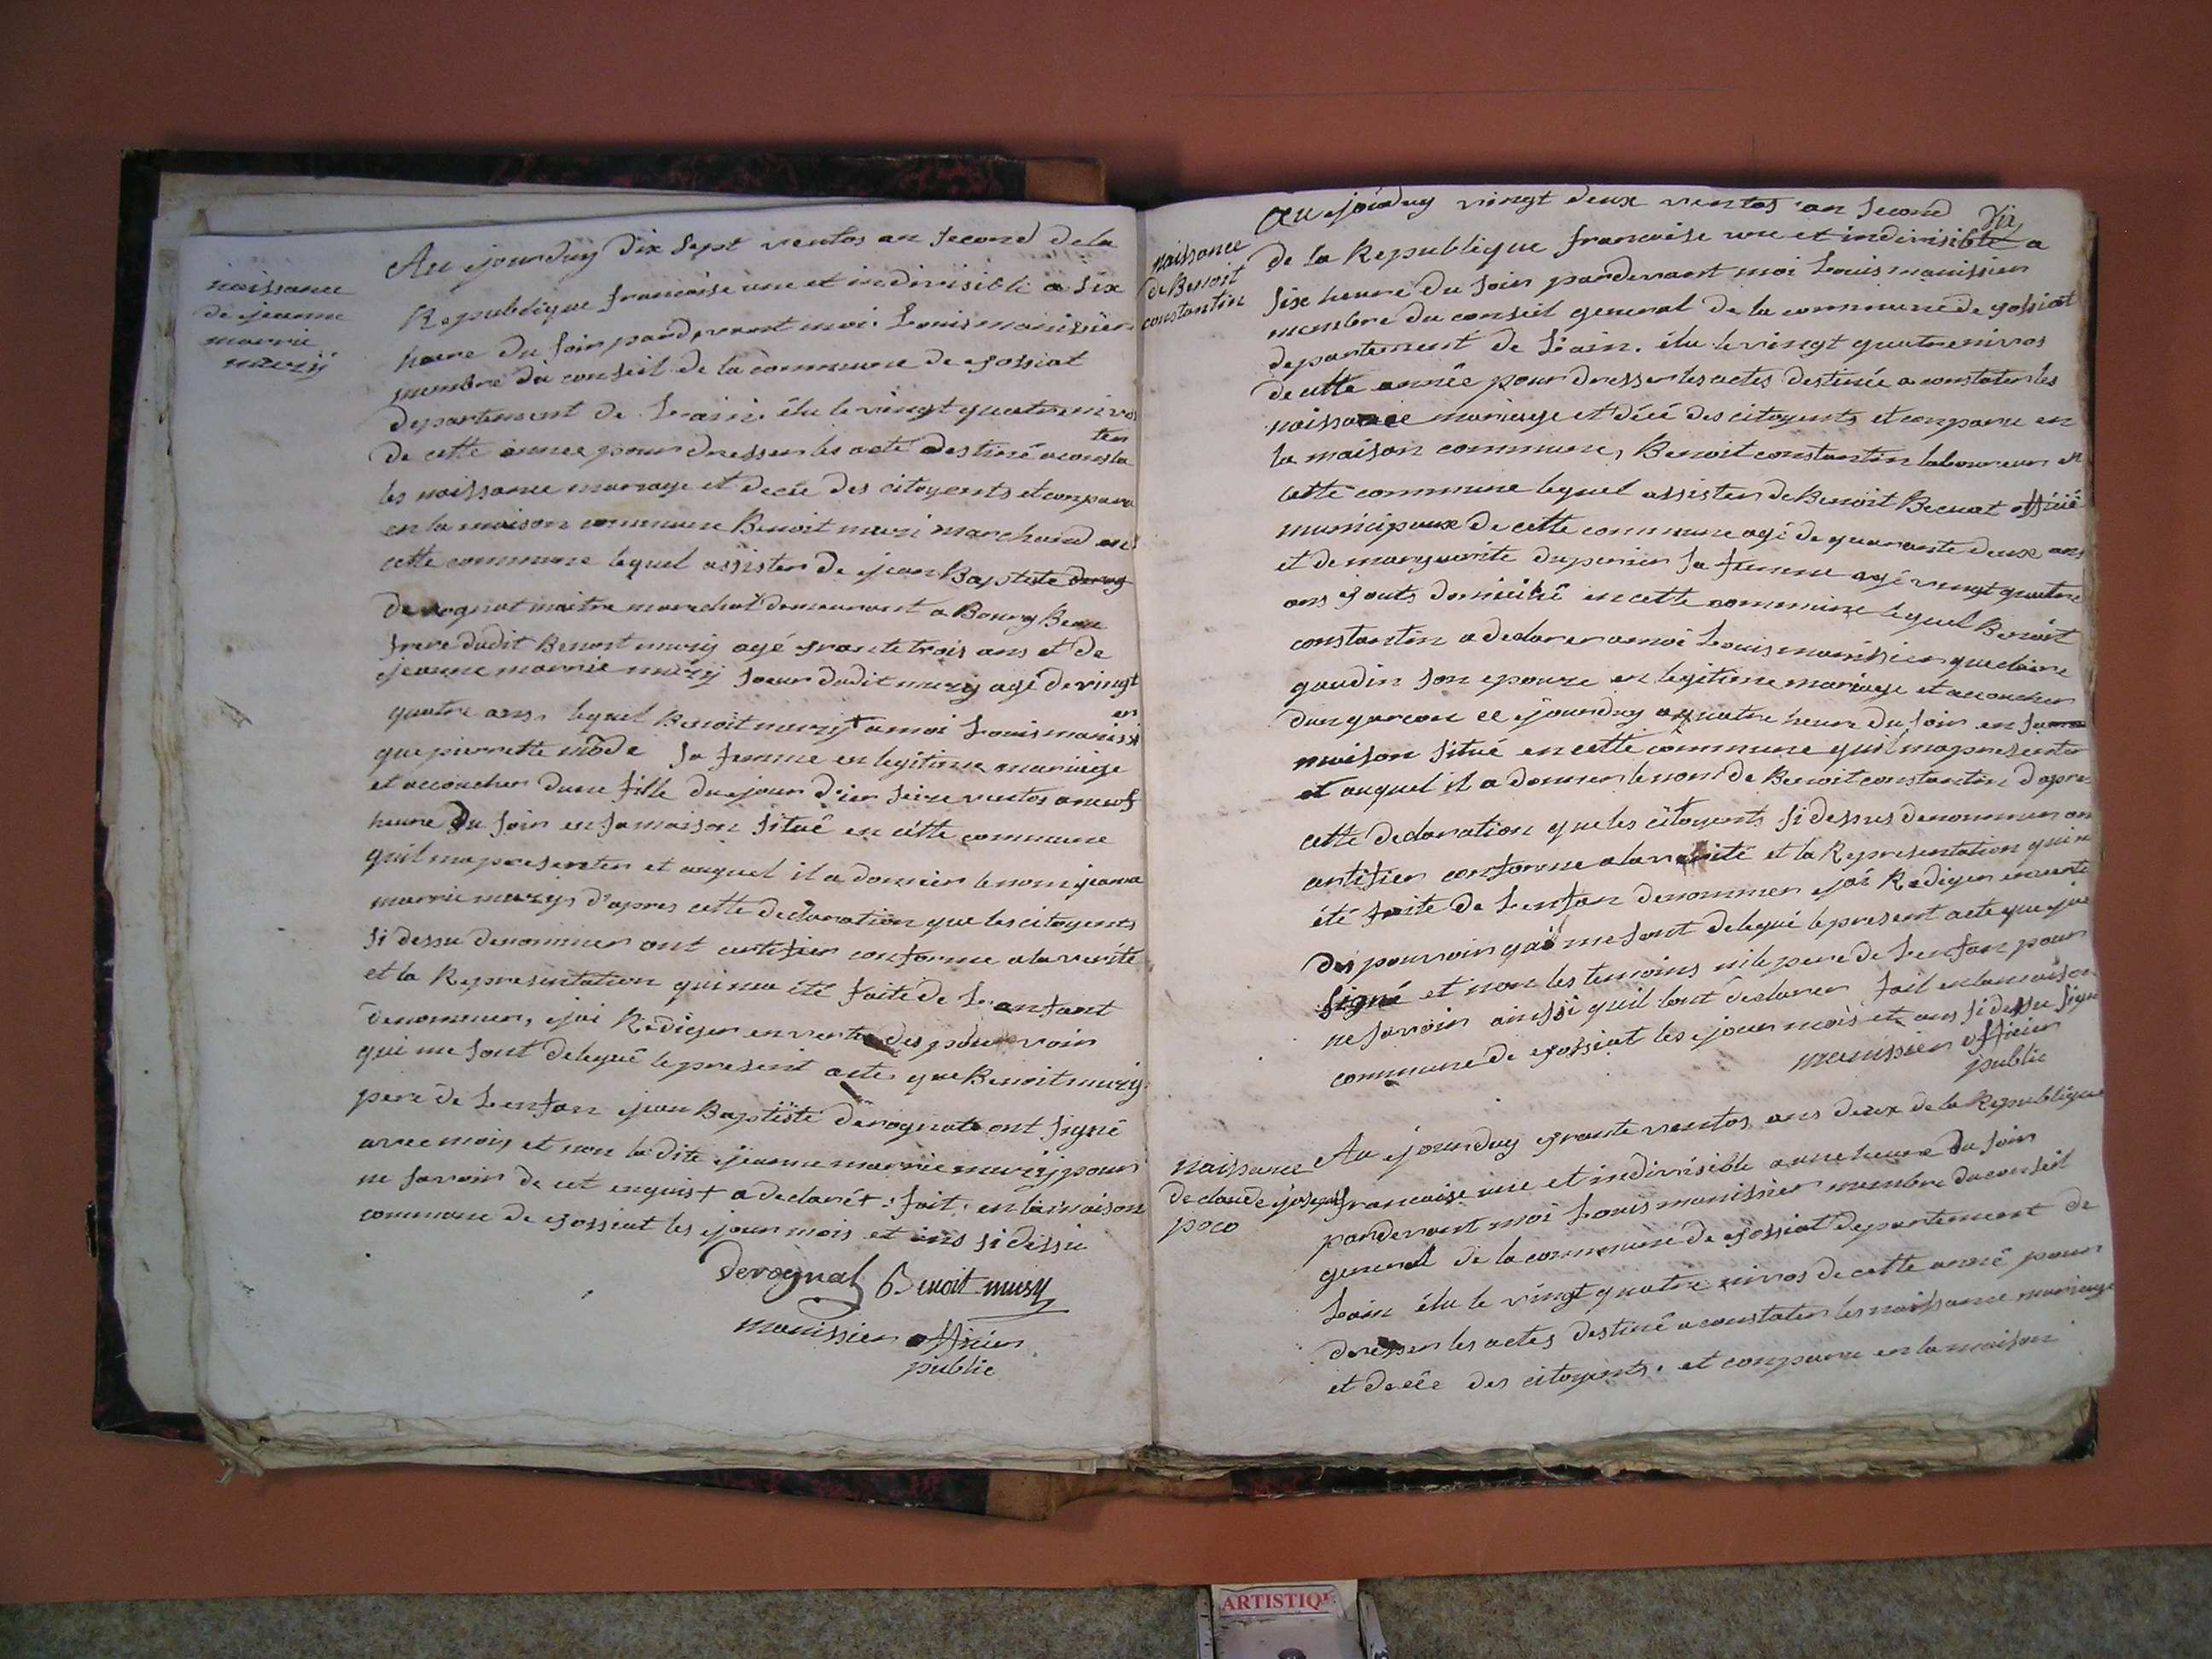 naissance
de jeanne
marrie
muzÿ
Au jourduy dix Sept ventos an Second dela
Republique francaise une et indivisible a Six
heure du Soir pardevant moi Louis manissier
membre du conseil de la commune de jossiat
departement de Lain. élu le vingt quatre nivos
de cette annee pour dresser les acté destiné a consta
ter
les naissance mariage et decée des citoyents et conparu
en la maison commune Benoit muzi marchand en
cette commune lequel assister de jean Baptiste
derognat maitre marechal demeurant a Bourg Beau
frere dudit Benoit muzÿ agé trante trois ans et de
jeanne marrie muzÿ Soeur dudit muzÿ agé de vingt
quatre ans, lequel Benoit muzÿ + a moi Louis manissi
er
que pierrette mode Sa femme en legitime mariage
et accoucher dune fille du jour d'ier Seize ventos a neuf
heure du Soir en Sa maison Situé en cette commune
quil ma presenter et auquel il a donner le nom jeanne
marrie muzÿ d'apres cette declaration que les citoyents
Si dessu denommer ont certifier conforme a la verité
et la Representation qui ma été faite de L'anfant
denommer, jai Rediger en vertu des pouvoir
qui me Sont delegué le present acte que Benoit muzÿ
pere de Lenfan jean Baptiste derognat ont Signé
avec moi et non la dite jeanne marrie muzÿ pour
ne Savoir de cet enquis + a declaré + : fait en la maison
commune de jossiat les jour mois et ans Si dessu
derognat Benoit muzy
manissier officier
public
Au jourduy vingt deux ventos an Second
naissance
de Benoit
constantin
de la Republique francaise une et indivisible a
Six heure du Soir pardevant moi Louis manissier
membre du conseil general de la commune de jossiat
departement de Lain. élu le vingt quatre nivos
de cette année pour dresser les actes destinée a constater les
naissance mariage et décé des citoyents et conparu en
la maison commune, Benoit constantin laboureur
cette commune lequel assister de Benoit Becuat officié
municipaux de cette commune agé de quarante deux ans
et de marguerite duperier Sa femme agé vingt quatre
ans touts domicilié en cette commune lequel Benoit
constantin a declarer a moi Louis manissier que claire
gaudin Son epouze en legitime mariage et accoucher
dun garcon ce jourduy a quatre heure du Soir en Sa
maison Situé en cette commune quil ma presenter
et auquel il a donner le nom de Benoit constantin d apres
cette declaration que les citoyents Si dessus denommer on
certifier conforme a la verité et la Representation qui m
été faite de Lenfan denommer jai Rediger en vertu
des pouvoir qui me Sont delegué le present acte que jai
Signé et non les temoins ni le pere de Lenfan pour
ne Savoir ainssi quil lont declarer fait en la maison
commune de jossiat les jour mois et ans Si dessu Signé
manissier officier
public
naissance
de claude joseph
poco
Au jourduy trante ventos ans deux de la Republique
francaise une et indivisible a une heure du Soir
pardevant moi Louis manissier membre du conseil
general de la commune de jossiat departement de
Lain élu le vingt quatre nivos de cette anné pour
dresser les actes destiné a constater les naissance mariage
et decée des citoyents. et conparu en la maison
ARTISTIQ